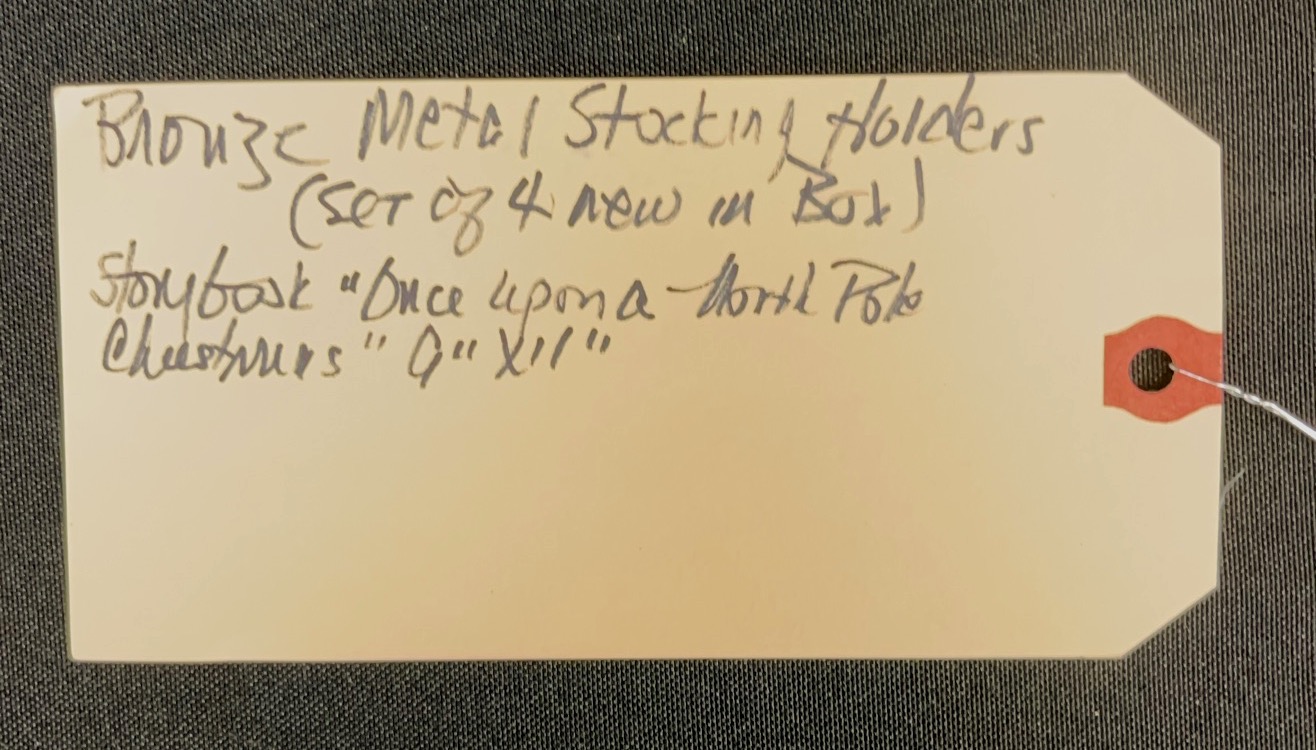 Bronze Metal Stocking Holders
(Set of 4 new in Box)
Storybook "Once upon a North Pole
Christmas" 9" X 11"